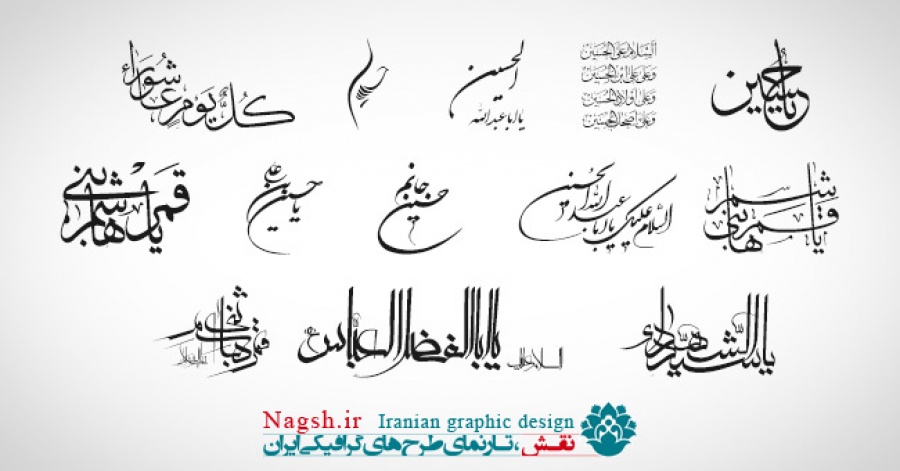 یا حسین
السَّلامُ عَلَی الحُسَین
وَ عَلی عَلی ابْنِ الحُسَین
وَ عَلی اَولادِ الحُسَین
وَ عَلی اَصحابِ الحُسَین
الحسین
یا اباعبدالله
کُلُّ یَومٍ عاشُوراء
یا قمر بنی هاشم
السلام علیک یا اباعبدالله الحسین
حسین جانم
یا حسین بن علی
یا قمر بنی هاشم
یا سیدالشهداء
یا اباالفضل العباس
Nagsh.ir Iranian graphic design
نقش، تارنمای طرح‌های گرافیکی ایران